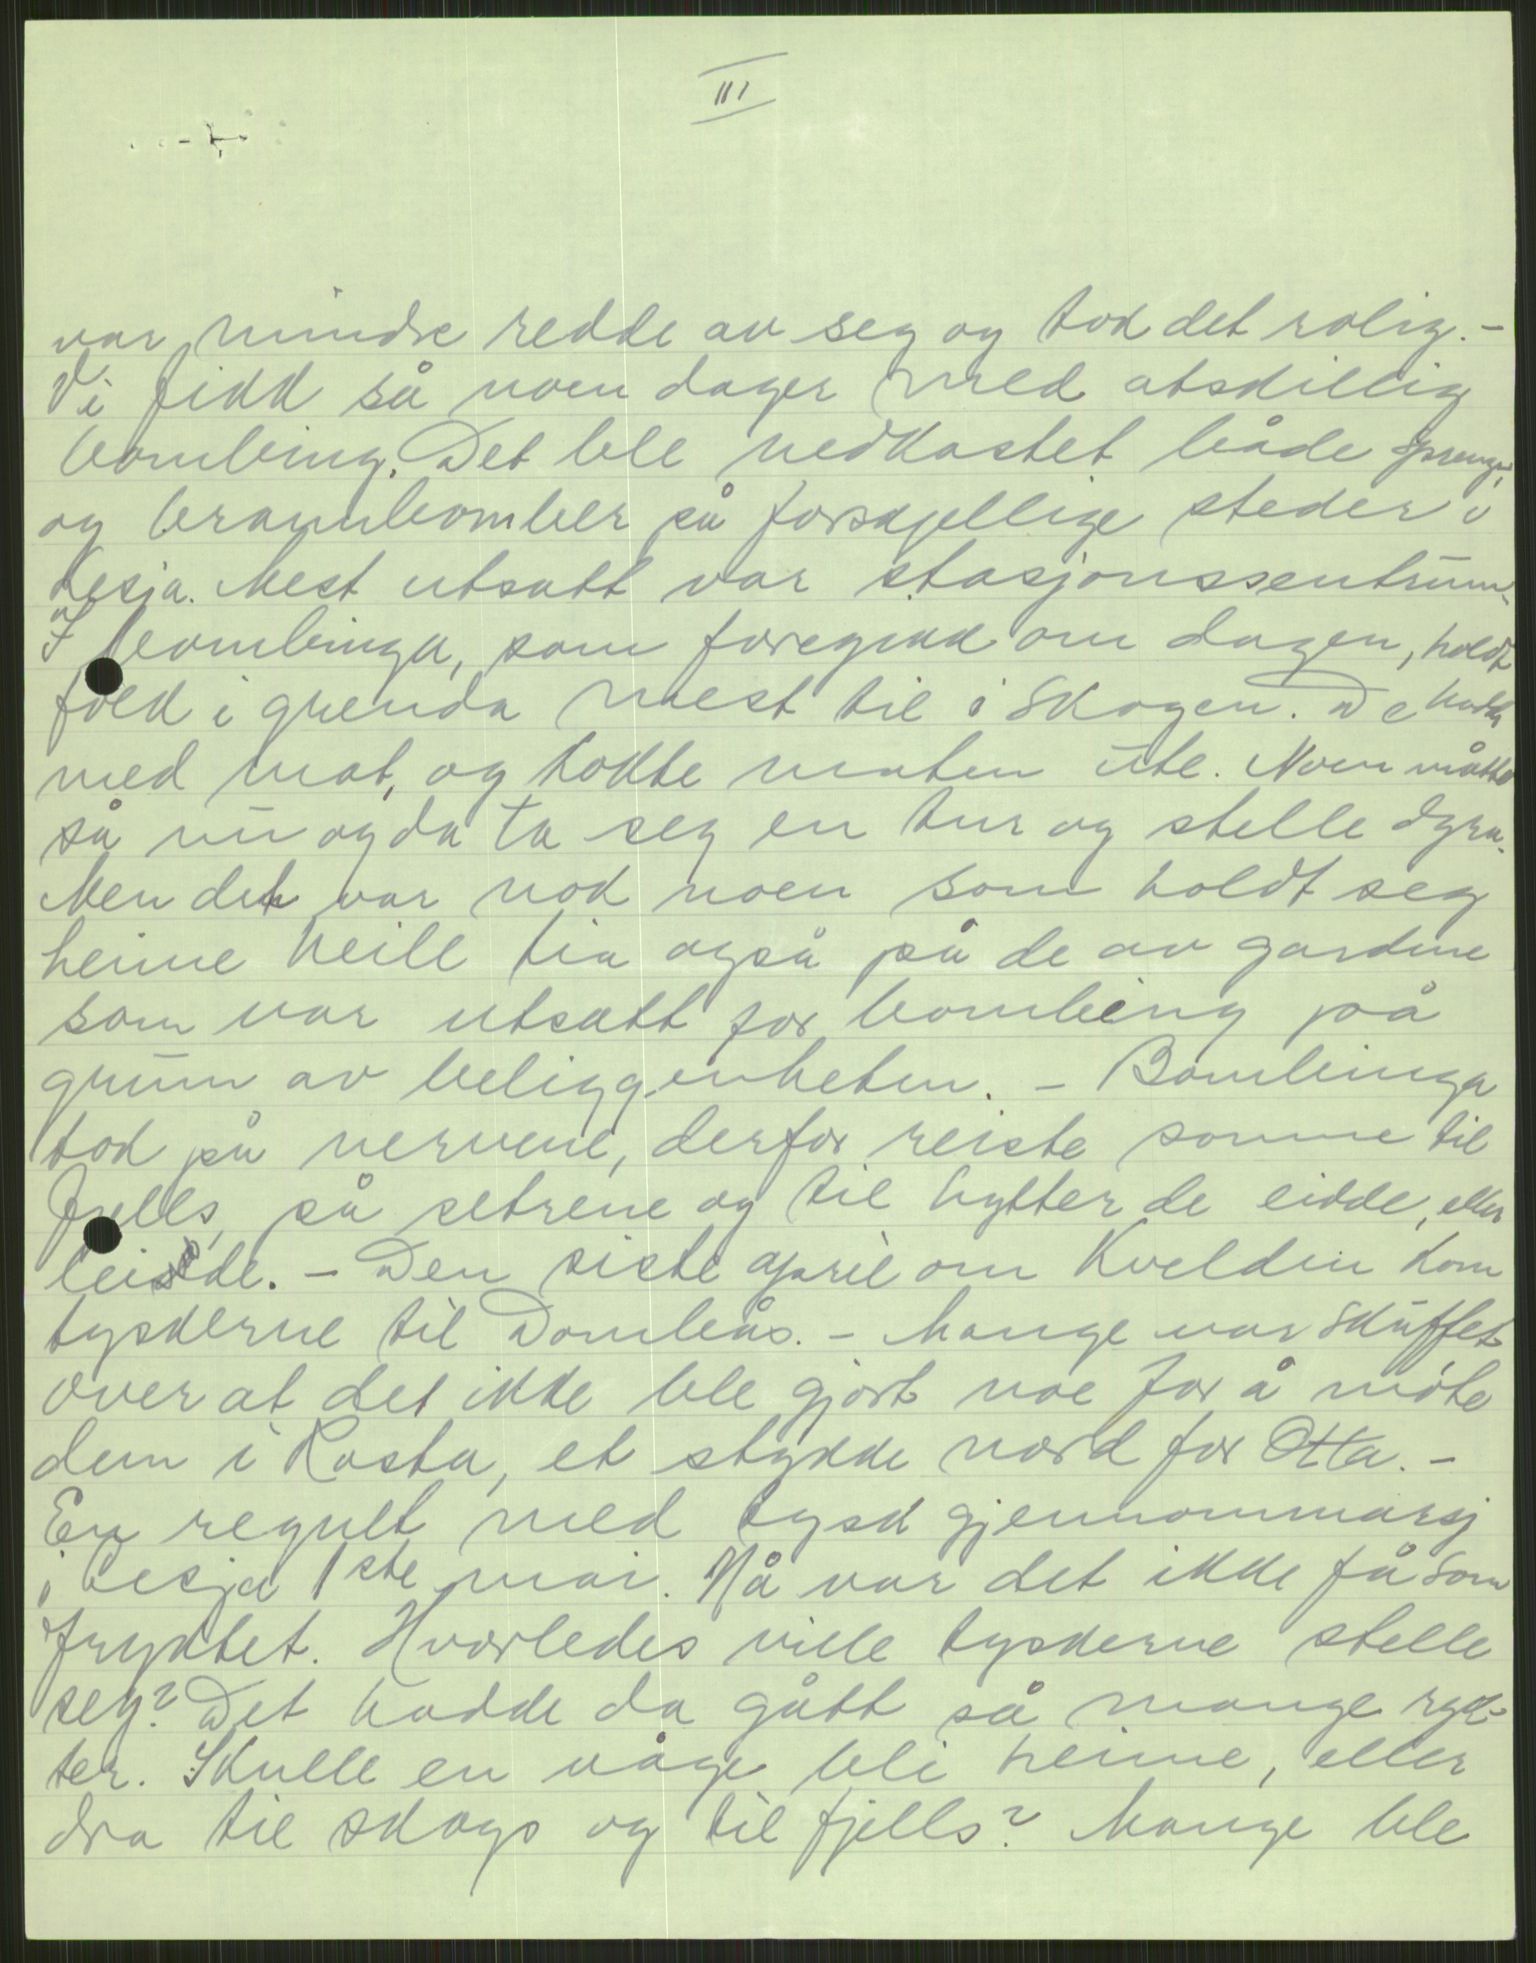 III
var mindre redde av seg og tok det rolig. -
Vi fikk så noen dager med atskillig
bombing. Det ble nedkastet både spreng-
og brannbomber på forskjellige steder i
Lesja. Mest utsatt var stasjonssentrum.
I bombinga, som foregikk om dagen, holdt
folk i grenda mest til i skogen. De hadde
med mat, og kokte maten ute. Noen måtte
så nu og da ta seg en tur og stelle dyra.
Men det var nok noen som holdt seg
heime heile tia også på de av gardene
som var utsatt for bombing på
grunn av beliggenheten. - Bombinga
tok på nervene, derfor reiste somme til
fjells, på setrene og til hytter de eidde, eller
leide. - Den siste april om kvelden kom
tyskerne til Dombås. - Mange var skuffet
over at det ikke ble gjort noe for å møte
dem i Rosta, et stykke nord for Otta. -
En regnet med tysk gjennommarsj
i Lesja 1ste mai. Nå var det ikke få som
fryktet. Hvorledes ville tyskerne stelle
seg? Det hadde da gått så mange ryk-
ter. Skulle en våge bli heime, eller
dra til skogs og til fjells? Mange ble